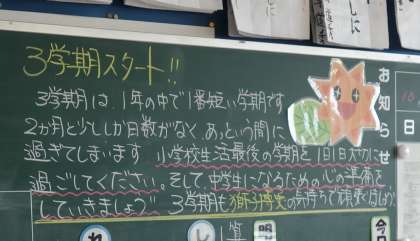 3学期スタート!!
3学期は、1年の中で1番短い学期です
2ヵ月と少ししか日数がなく、あっという間に
過ぎてしまいます 小学校生活最後の学期を1日1日大切に
過ごしてください。そして、中学生になるための心の準備を
していきましょう 3学期も獅斗博実の気持ちで頑張りましょう
お知らせ
日
れ
し
算
明
今日